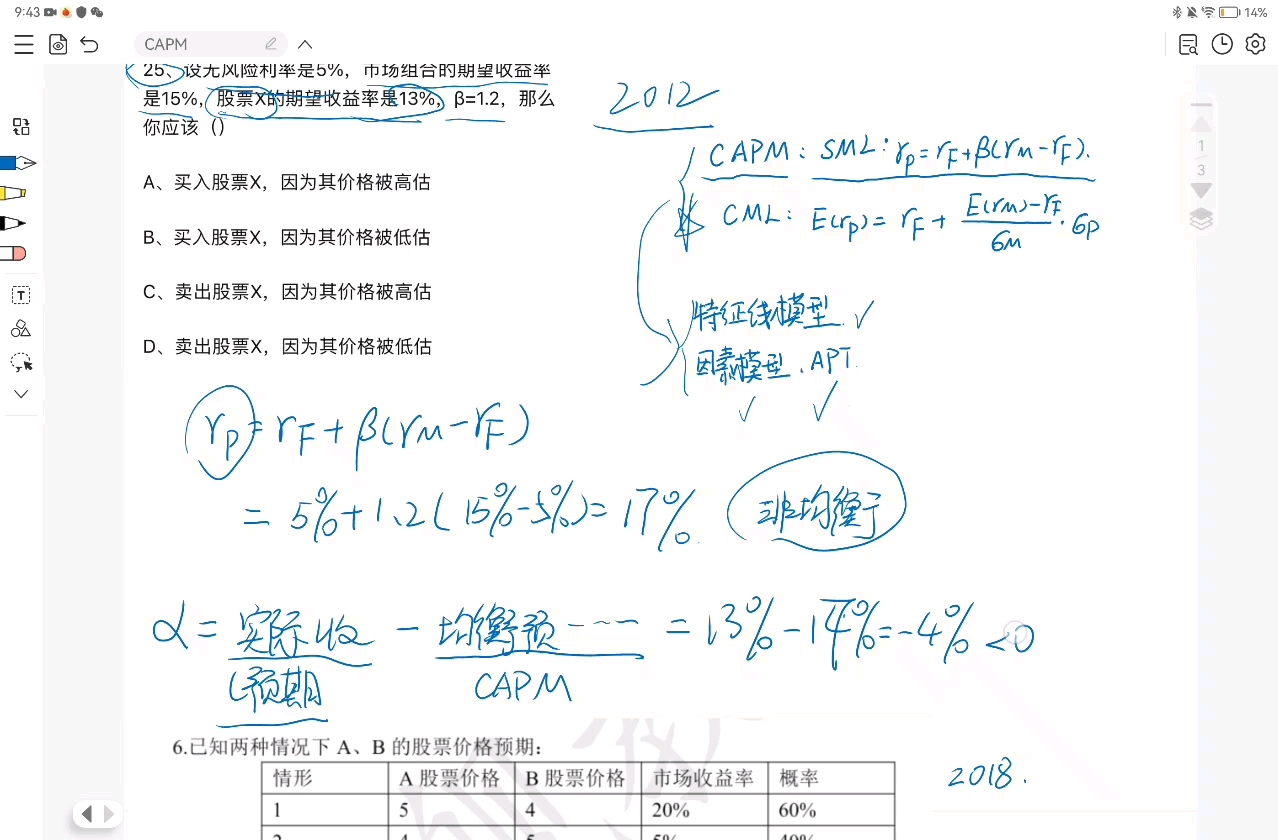 9:43
14%
CAPM
25、设无风险利率是5%，市场组合的期望收益率
是15%，股票X的期望收益率是13%，β=1.2，那么
你应该（）
A、买入股票X，因为其价格被高估
B、买入股票X，因为其价格被低估
C、卖出股票X，因为其价格被高估
D、卖出股票X，因为其价格被低估
2012
CAPM：SML：rp=rF+β(rM-rF).
CML：E(rp)=rF+(E(rM)-rF)/6M·6p
特征线模型.✓
因素模型、APT.
✓ ✓
1
3
rp=rF+β(rM-rF)
=5%+1.2(15%-5%)=17%.
非均衡
α=实际收-均衡预----=13%-17%=-4%<0
(预期
CAPM
6.已知两种情况下 A、B 的股票价格预期：
2018.
情形 A 股票价格 B 股票价格 市场收益率 概率
1 5 4 20% 60%